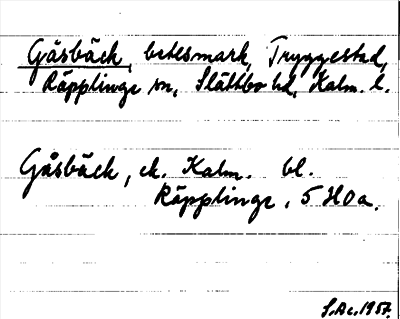 Gåsbäck, betesmark, Tryggestad,
Räpplinge sn, Slättbo hd, Kalm. l.
Gåsbäck, ek. Kalm. bl.
Räpplinge, 5 H0a.
S.Ac. 1957.